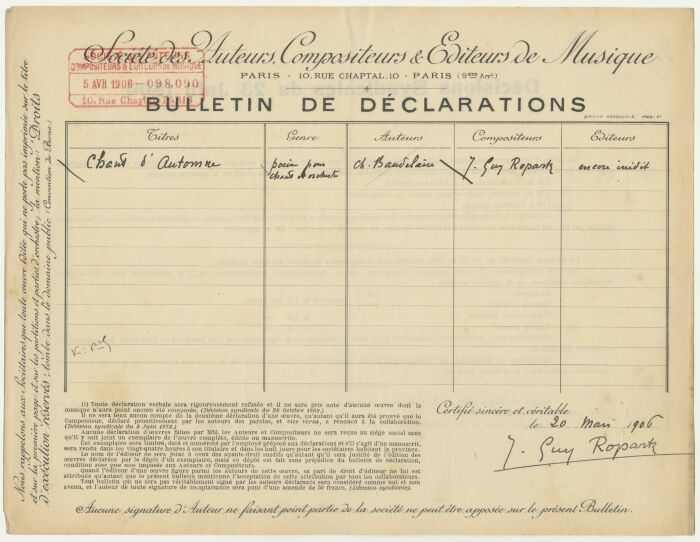 Société des Auteurs, Compositeurs & Editeurs de Musique
PARIS · 10, RUE CHAPTAL, 10 · PARIS (9ème Arrt)
COMPOSITEURS & EDITEURS DE MUSIQUE
5 AVR 1906 - 098,050
10, Rue Chaptal, PARIS
BULLETIN DE DÉCLARATIONS
Titres Genre Auteurs Compositeurs Editeurs
Chant d'Automne poème pour chant et orchestre Ch. Baudelaire J. Guy Ropartz encore inédit
Nous rappelons aux Sociétaires que toute œuvre éditée qui ne porte pas imprimée sur le titre
et sur la première page et sur les partitions et parties d'orchestre, la mention: Droits
d'exécution réservés, tombe dans le domaine public (Convention de Berne)
(1) Toute déclaration verbale sera rigoureusement refusée et il ne sera pris note d'aucune œuvre dont la
musique n'aura point encore été composée. (Décision syndicale du 28 Octobre 1889.)
Il ne sera tenu aucun compte de la deuxième déclaration d'une œuvre, qu'autant qu'il aura été prouvé que le
Compositeur, déclaré primitivement par les auteurs des paroles, et vice versa, a renoncé à la collaboration.
(Décision syndicale du Juin 1873.)
Aucune déclaration d'œuvres faites par MM. les Auteurs et Compositeurs ne sera reçue au siège social sans
qu'il y soit joint un exemplaire de l'œuvre complète, éditée ou manuscrite.
Cet exemplaire sera timbré, daté et numéroté par l'employé préposé aux déclarations et s'il s'agit d'un manuscrit,
sera rendu dans les vingt-quatre heures à son titulaire et dans les huit jours pour les sociétaires habitant la province.
Le nom de l'éditeur ne sera, joint à ceux des ayants-droit inédits qu'autant qu'il sera justifié de l'édition des
œuvres déclarées par le dépôt d'un exemplaire, mais ce dépôt est fait sans préjudice du bulletin de déclaration
condition sine qua non imposée aux Auteurs et Compositeurs.
Quand l'éditeur d'une œuvre figure parmi les auteurs de cette œuvre, sa part de droit d'éditeur ne lui est
attribuée qu'autant que le présent bulletin mentionne l'acceptation de cette attribution par tous les collaborateurs.
Tout bulletin qui ne sera pas véritablement signé par les auteurs déclarants sera considéré comme nul et non
avenu, et l'auteur de toute signature de complaisance sera puni d'une amende de 50 francs. (Décision syndicale).
Certifié sincère et véritable
le 20 Mars 1906
J. Guy Ropartz
Aucune signature d'Auteur ne faisant point partie de la société ne peut être apposée sur le présent Bulletin.